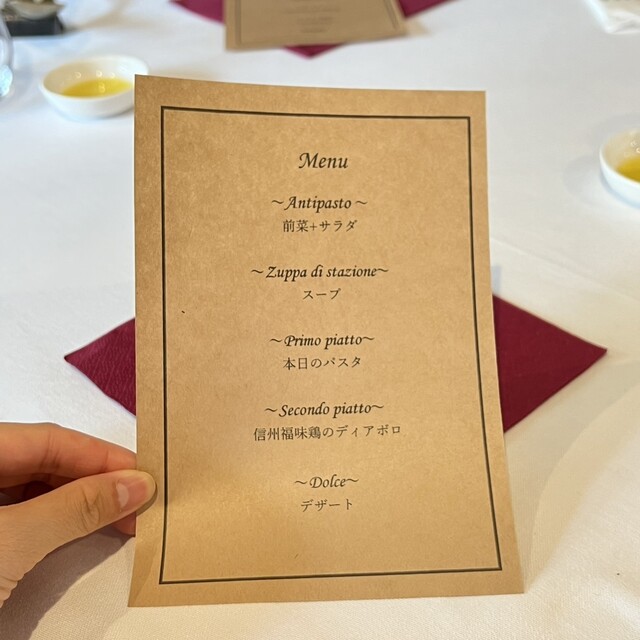 Menu
～Antipasto～
前菜+サラダ
～Zuppa di stazione～
スープ
～Primo piatto～
本日のパスタ
～Secondo piatto～
信州福味鶏のディアボロ
～Dolce～
デザート